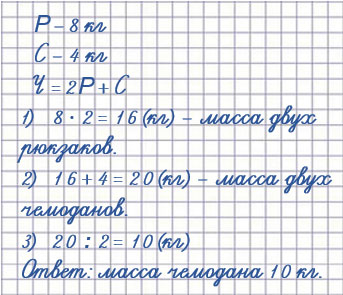 Р – 8 кг
С – 4 кг
Ч = 2Р + С
1) 8 · 2 = 16 (кг) – масса двух
рюкзаков.
2) 16 + 4 = 20 (кг) – масса двух
чемоданов.
3) 20 : 2 = 10 (кг)
Ответ: масса чемодана 10 кг.